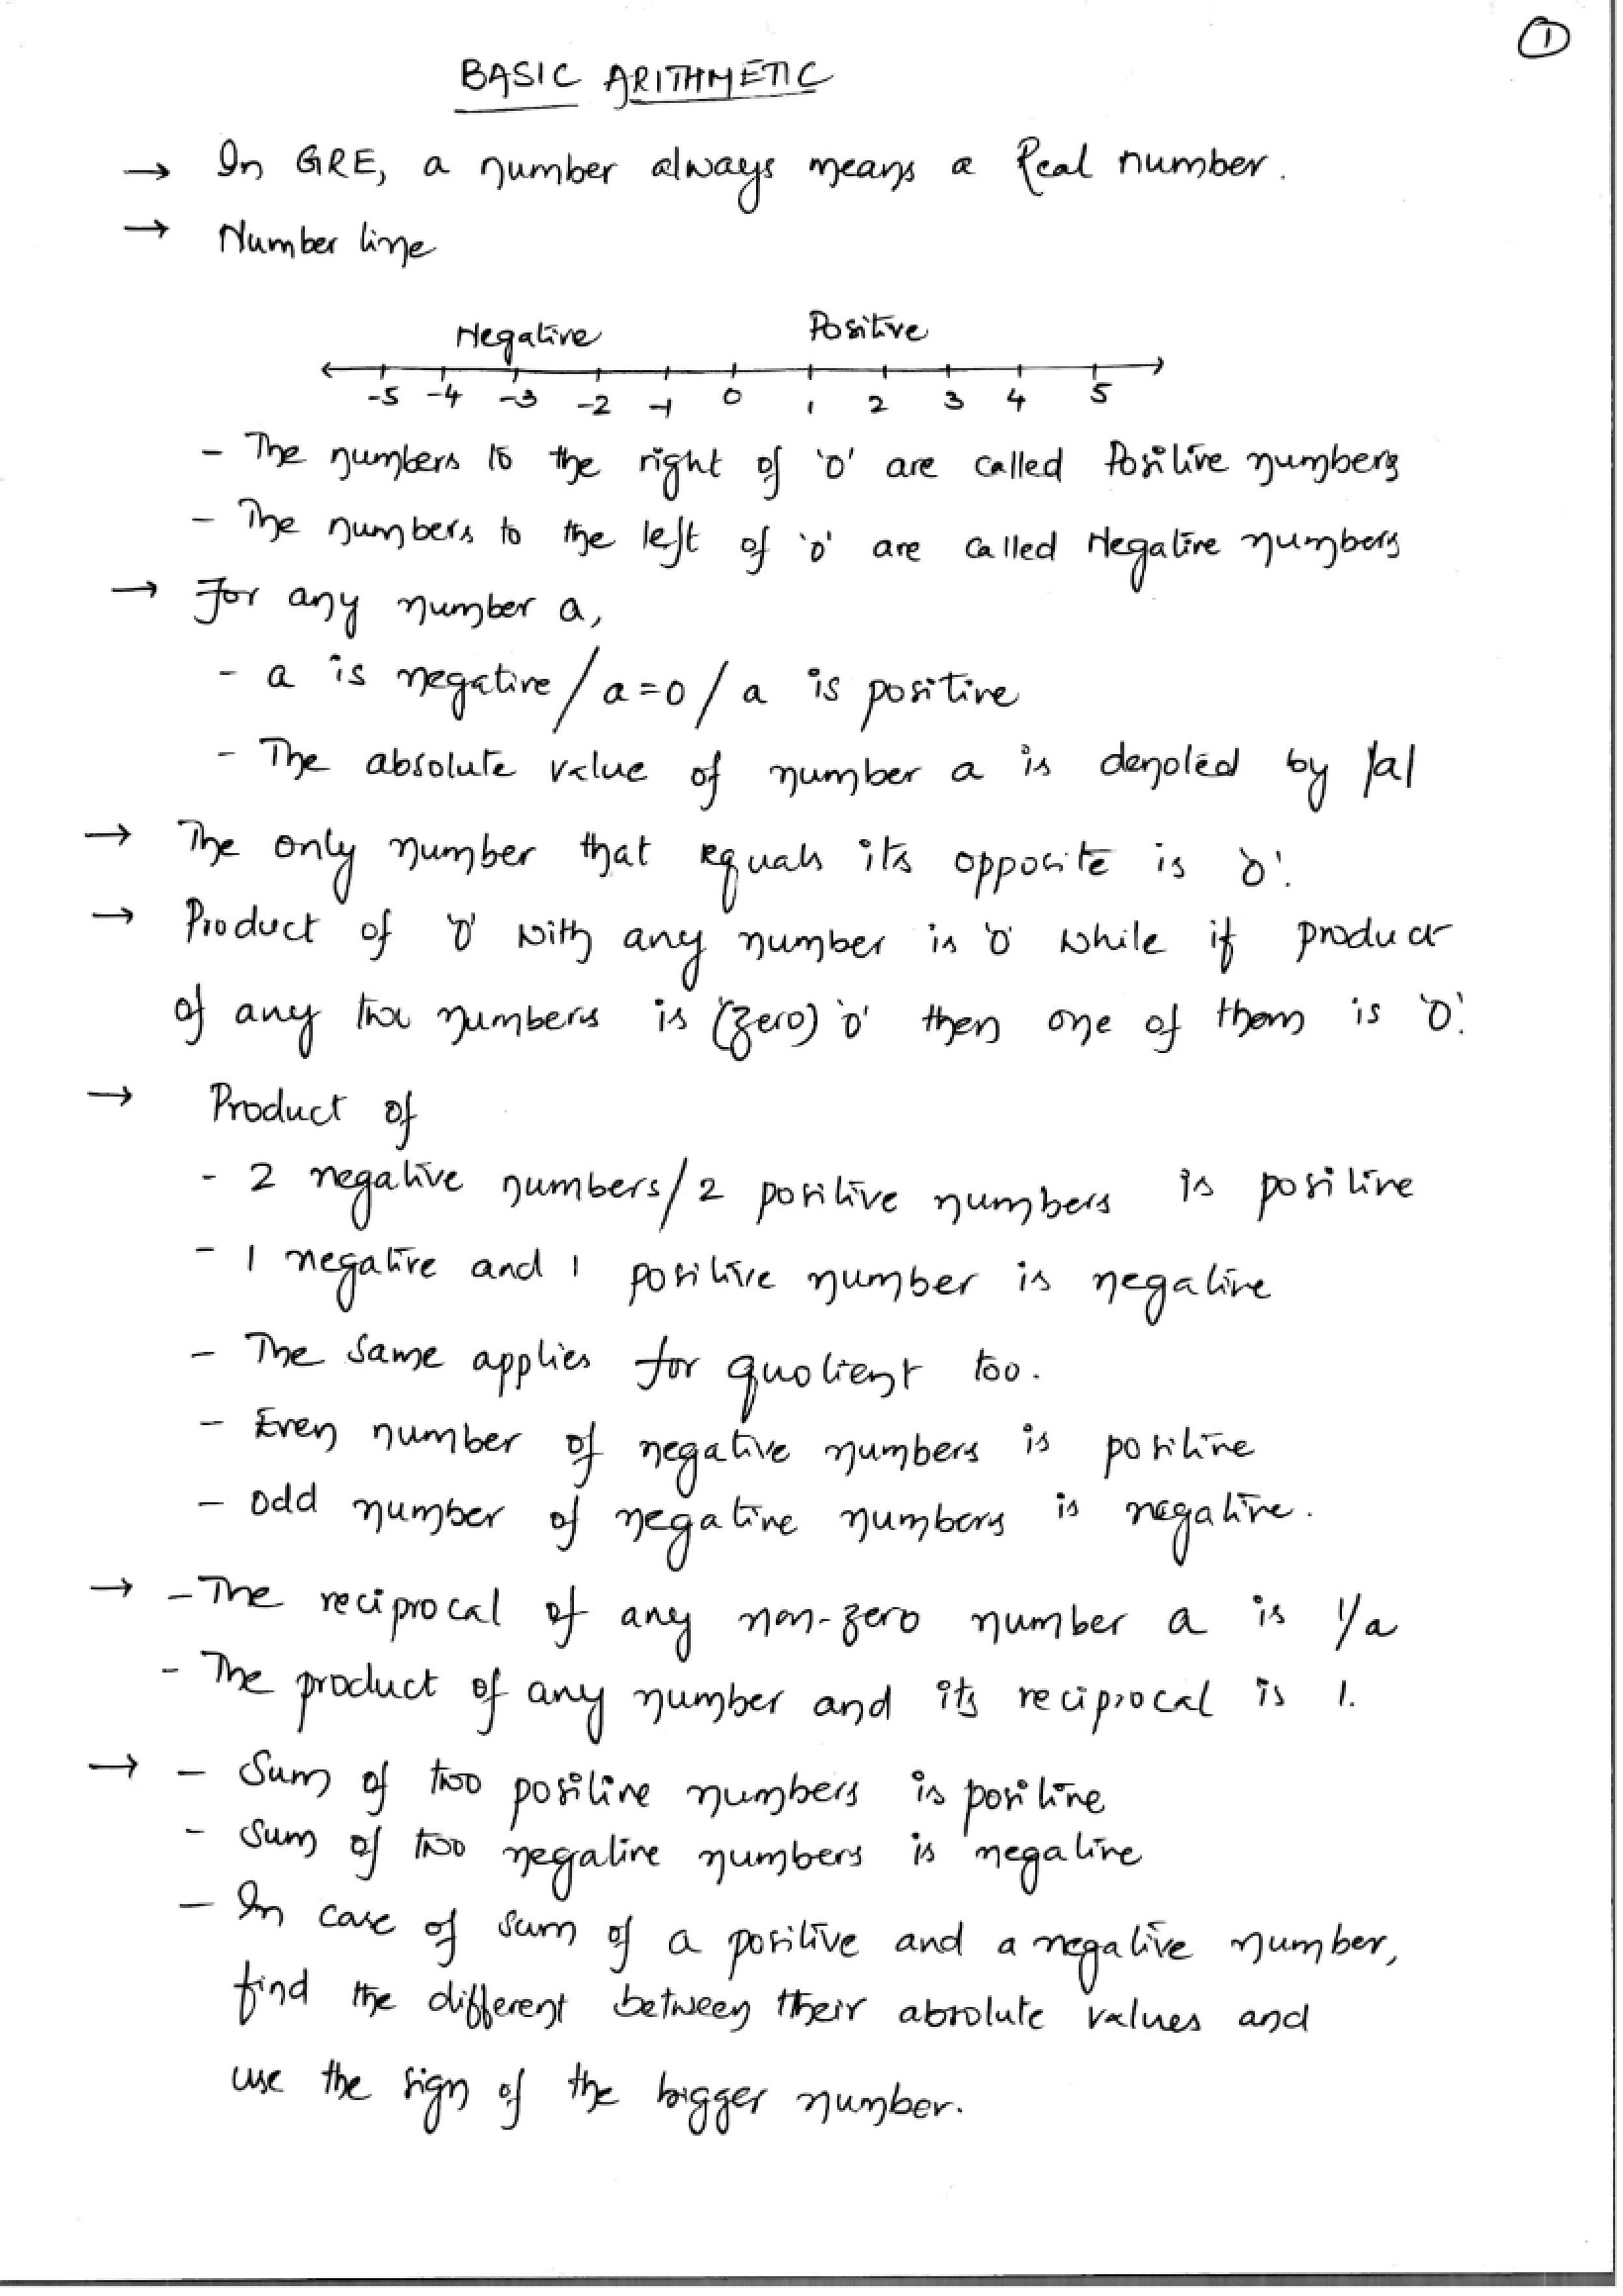 1
BASIC ARITHMETIC
→ In GRE, a number always means a Real number.
→ Number line
Negative Positive
-5 -4 -3 -2 -1 0 1 2 3 4 5
- The numbers to the right of '0' are called Positive numbers
- The numbers to the left of '0' are called Negative numbers
→ For any number a,
- a is negative / a=0 / a is positive
- The absolute value of number a is denoted by |a|
→ The only number that equals its opposite is '0'.
→ Product of '0' with any number is '0' while if product
of any two numbers is (zero) '0' then one of them is '0'.
→ Product of
- 2 negative numbers/2 positive numbers is positive
- 1 negative and 1 positive number is negative
- The same applies for quotient too.
- Even number of negative numbers is positive
- odd number of negative numbers is negative.
→ - The reciprocal of any non-zero number a is 1/a
- The product of any number and its reciprocal is 1.
→ - Sum of two positive numbers is positive
- Sum of two negative numbers is negative
- In case of sum of a positive and a negative number,
find the different between their absolute values and
use the sign of the bigger number.